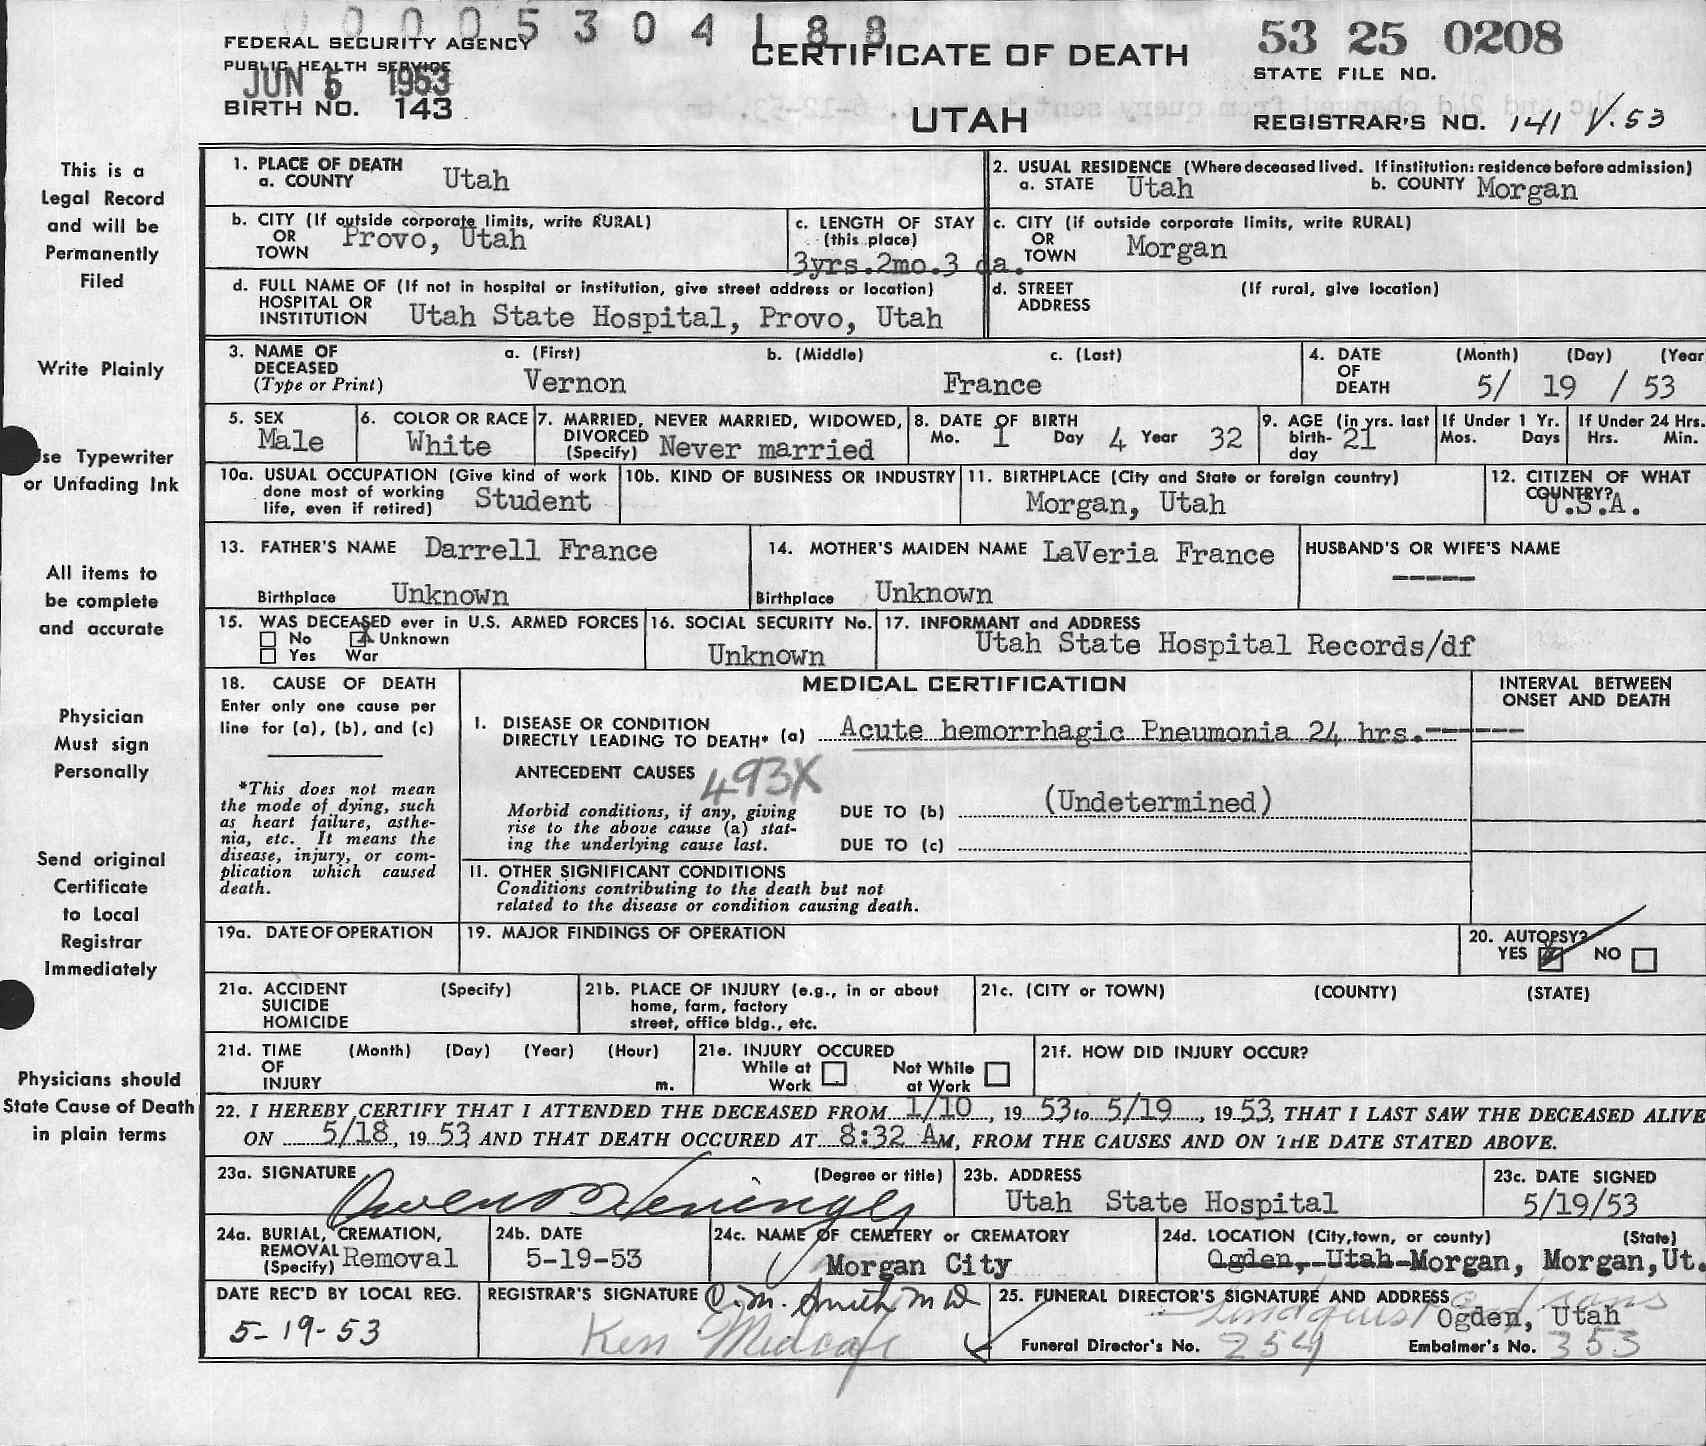 0005304188
FEDERAL SECURITY AGENCY
PUBLIC HEALTH SERVICE
JUN 5 1953
BIRTH NO. 143
CERTIFICATE OF DEATH
UTAH
53 25 0208
STATE FILE NO.
REGISTRAR'S NO. 141 V.53
This is a
Legal Record
and will be
Permanently
Filed
Write Plainly
Use Typewriter
or Unfading Ink
All items to
be complete
and accurate
Physician
Must sign
Personally
Send original
Certificate
to Local
Registrar
Immediately
Physicians should
State Cause of Death
in plain terms
1. PLACE OF DEATH
a. COUNTY Utah
2. USUAL RESIDENCE (Where deceased lived. If institution: residence before admission)
a. STATE Utah b. COUNTY Morgan
b. CITY (If outside corporate limits, write RURAL)
OR
TOWN Provo, Utah
c. LENGTH OF STAY
(this place)
3yrs.2mo.3 da.
c. CITY (if outside corporate limits, write RURAL)
OR
TOWN Morgan
d. FULL NAME OF (If not in hospital or institution, give street address or location)
HOSPITAL OR
INSTITUTION Utah State Hospital, Provo, Utah
d. STREET (If rural, give location)
ADDRESS
3. NAME OF DECEASED
(Type or Print)
a. (First) b. (Middle) c. (Last)
Vernon France
4. DATE OF DEATH (Month) (Day) (Year
5/ 19 / 53
5. SEX
Male
6. COLOR OR RACE
White
7. MARRIED, NEVER MARRIED, WIDOWED,
DIVORCED
(Specify) Never married
8. DATE OF BIRTH
Mo. 1 Day 4 Year 32
9. AGE (in yrs. last
birthday 21
If Under 1 Yr.
Mos. Days
If Under 24 Hrs.
Hrs. Min.
10a. USUAL OCCUPATION (Give kind of work
done most of working
life, even if retired) Student
10b. KIND OF BUSINESS OR INDUSTRY
11. BIRTHPLACE (City and State or foreign country)
Morgan, Utah
12. CITIZEN OF WHAT
COUNTRY?
U.S.A.
13. FATHER'S NAME Darrell France
Birthplace Unknown
14. MOTHER'S MAIDEN NAME LaVeria France
Birthplace Unknown
HUSBAND'S OR WIFE'S NAME
-----
15. WAS DECEASED ever in U.S. ARMED FORCES
No Unknown
Yes War
16. SOCIAL SECURITY No.
Unknown
17. INFORMANT and ADDRESS
Utah State Hospital Records/df
18. CAUSE OF DEATH
Enter only one cause per
line for (a), (b), and (c)
*This does not mean
the mode of dying, such
as heart failure, asthe-
nia, etc. It means the
disease, injury, or com-
plication which caused
death.
MEDICAL CERTIFICATION
INTERVAL BETWEEN
ONSET AND DEATH
I. DISEASE OR CONDITION
DIRECTLY LEADING TO DEATH* (a) Acute hemorrhagic Pneumonia 24 hrs.------
ANTECEDENT CAUSES 493X
Morbid conditions, if any, giving
rise to the above cause (a) stat-
ing the underlying cause last.
DUE TO (b) (Undetermined)
DUE TO (c)
II. OTHER SIGNIFICANT CONDITIONS
Conditions contributing to the death but not
related to the disease or condition causing death.
19a. DATE OF OPERATION
19. MAJOR FINDINGS OF OPERATION
20. AUTOPSY?
YES NO
21a. ACCIDENT (Specify)
SUICIDE
HOMICIDE
21b. PLACE OF INJURY (e.g., in or about
home, farm, factory
street, office bldg., etc.
21c. (CITY or TOWN) (COUNTY) (STATE)
21d. TIME (Month) (Day) (Year) (Hour)
OF
INJURY m.
21e. INJURY OCCURED
While at Work
Not While at Work
21f. HOW DID INJURY OCCUR?
22. I HEREBY CERTIFY THAT I ATTENDED THE DECEASED FROM 1/10, 19 53 to 5/19, 19 53, THAT I LAST SAW THE DECEASED ALIVE
ON 5/18, 19 53 AND THAT DEATH OCCURED AT 8:32 AM, FROM THE CAUSES AND ON THE DATE STATED ABOVE.
23a. SIGNATURE (Degree or title)
23b. ADDRESS
Utah State Hospital
23c. DATE SIGNED
5/19/53
24a. BURIAL, CREMATION,
REMOVAL
(Specify) Removal
24b. DATE
5-19-53
24c. NAME OF CEMETERY or CREMATORY
Morgan City
24d. LOCATION (City, town, or county) (State)
Ogden, Utah Morgan, Morgan, Ut.
DATE REC'D BY LOCAL REG.
5-19-53
REGISTRAR'S SIGNATURE C. M. Smith MD
Ken Midcafe
25. FUNERAL DIRECTOR'S SIGNATURE AND ADDRESS
Lindquist and sons
Ogden, Utah
Funeral Director's No. 254 Embalmer's No. 353